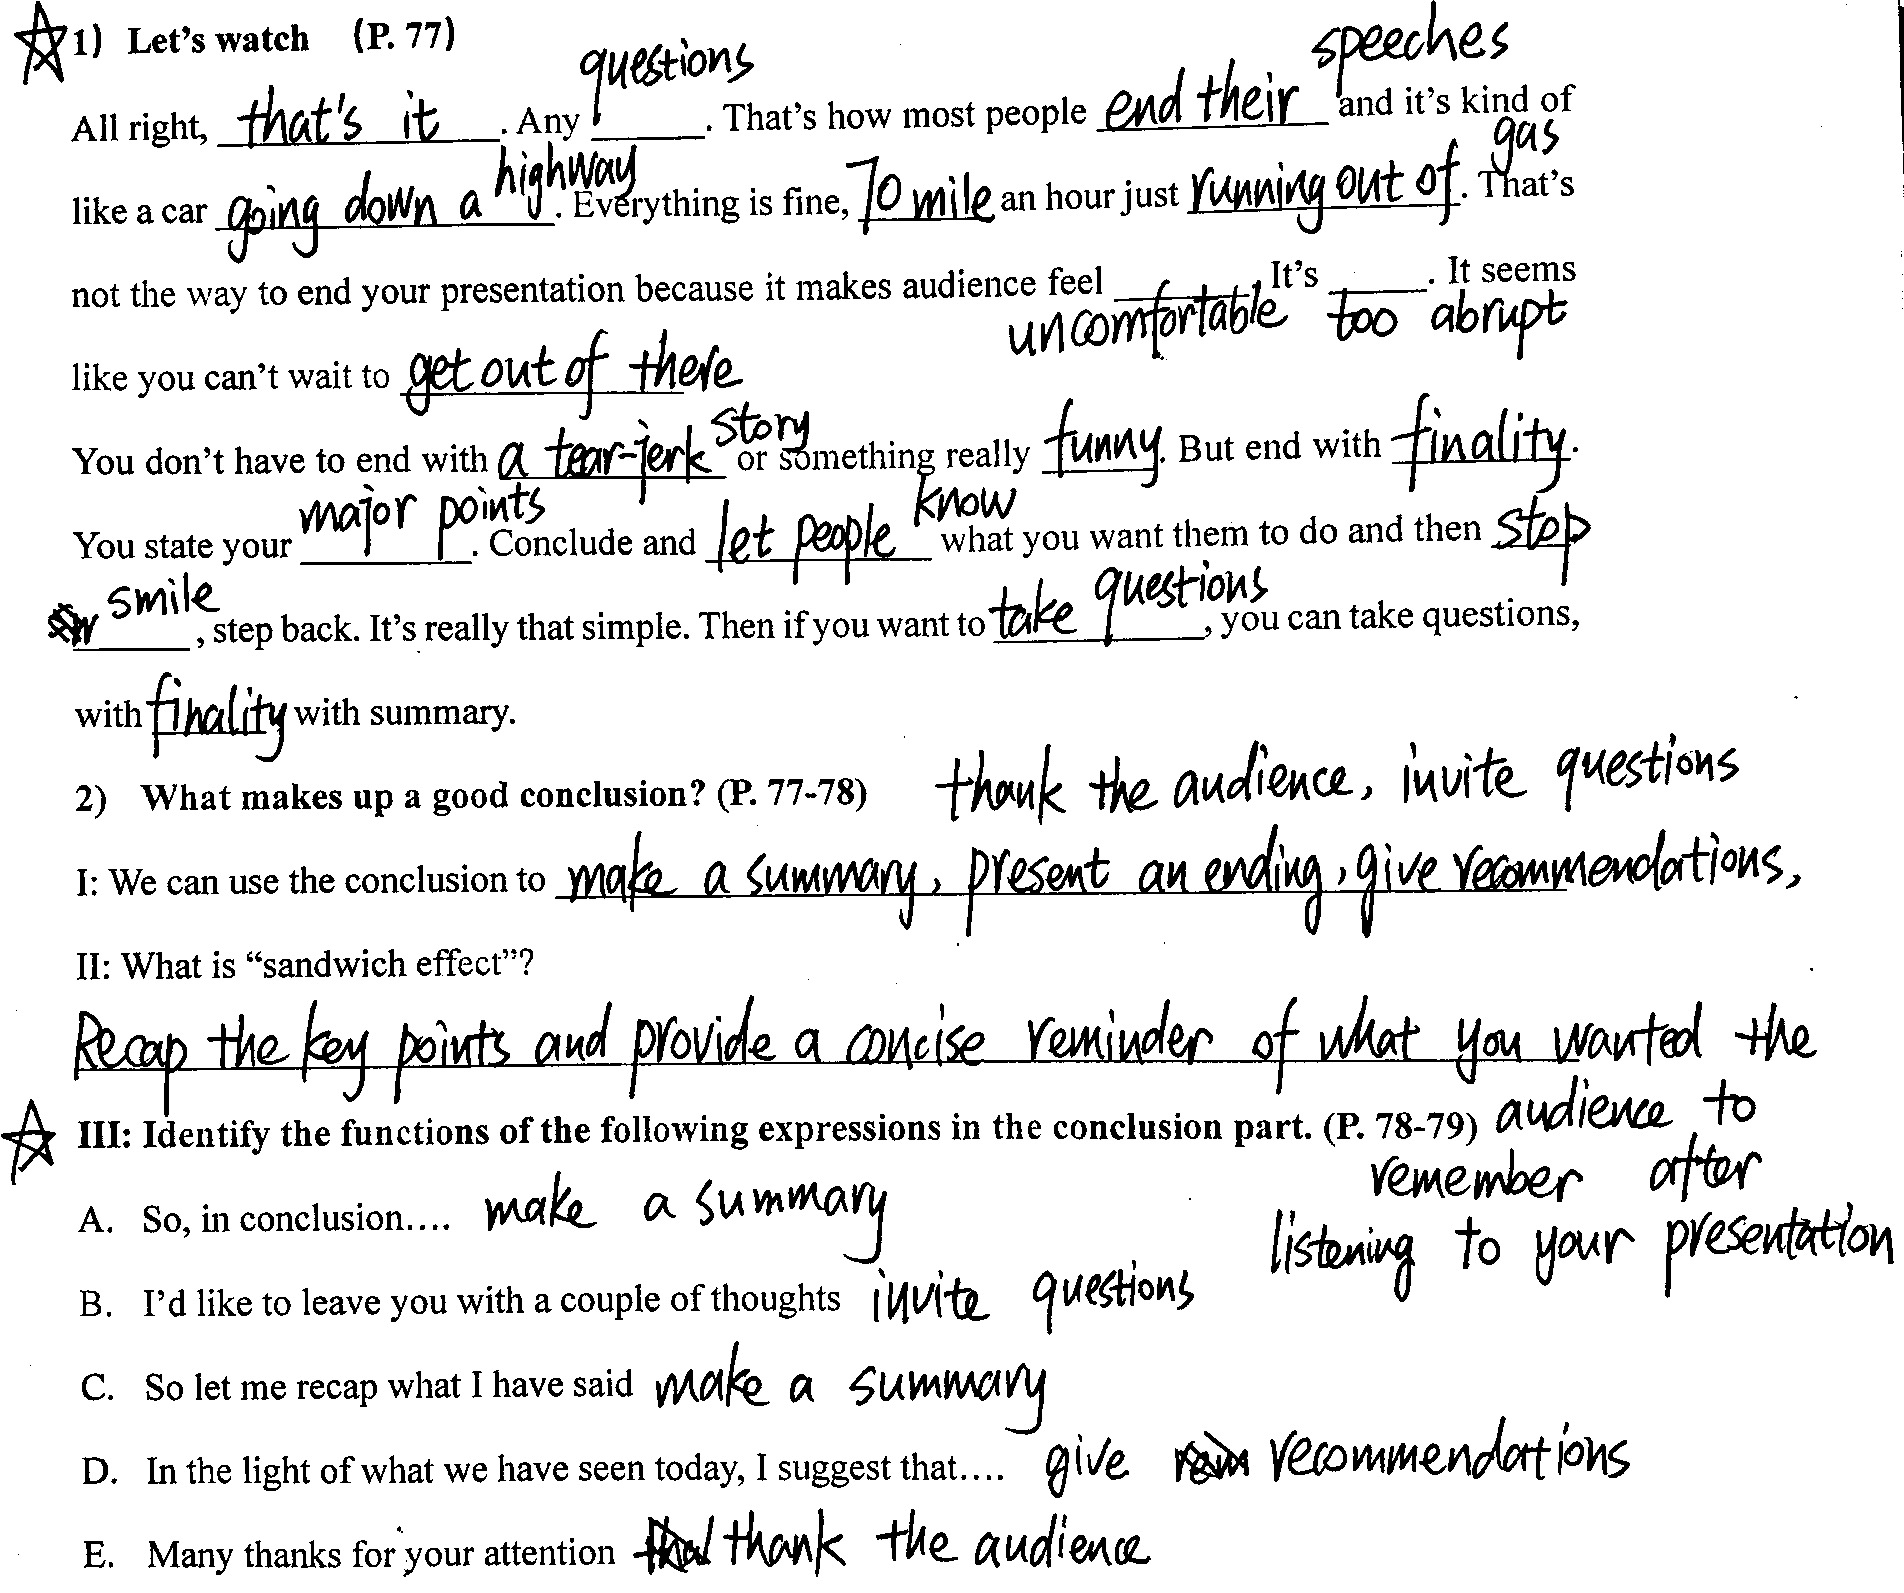 1) Let's watch (P. 77)
All right, that's it. Any questions. That's how most people end their speeches and it's kind of
like a car going down a highway. Everything is fine, 70 mile an hour just running out of gas. That's
not the way to end your presentation because it makes audience feel uncomfortable. It's too abrupt. It seems
like you can't wait to get out of there
You don't have to end with a tear-jerk story or something really funny. But end with finality.
You state your major points. Conclude and let people know what you want them to do and then stop
smile, step back. It's really that simple. Then if you want to take questions, you can take questions,
with finality with summary.
2) What makes up a good conclusion? (P. 77-78)
I: We can use the conclusion to make a summary, present an ending, give recommendations,
thank the audience, invite questions
II: What is “sandwich effect”?
Recap the key points and provide a concise reminder of what you wanted the
audience to
remember after
listening to your presentation
III: Identify the functions of the following expressions in the conclusion part. (P. 78-79)
A. So, in conclusion.... make a summary
B. I'd like to leave you with a couple of thoughts invite questions
C. So let me recap what I have said make a summary
D. In the light of what we have seen today, I suggest that.... give recommendations
E. Many thanks for your attention thank the audience